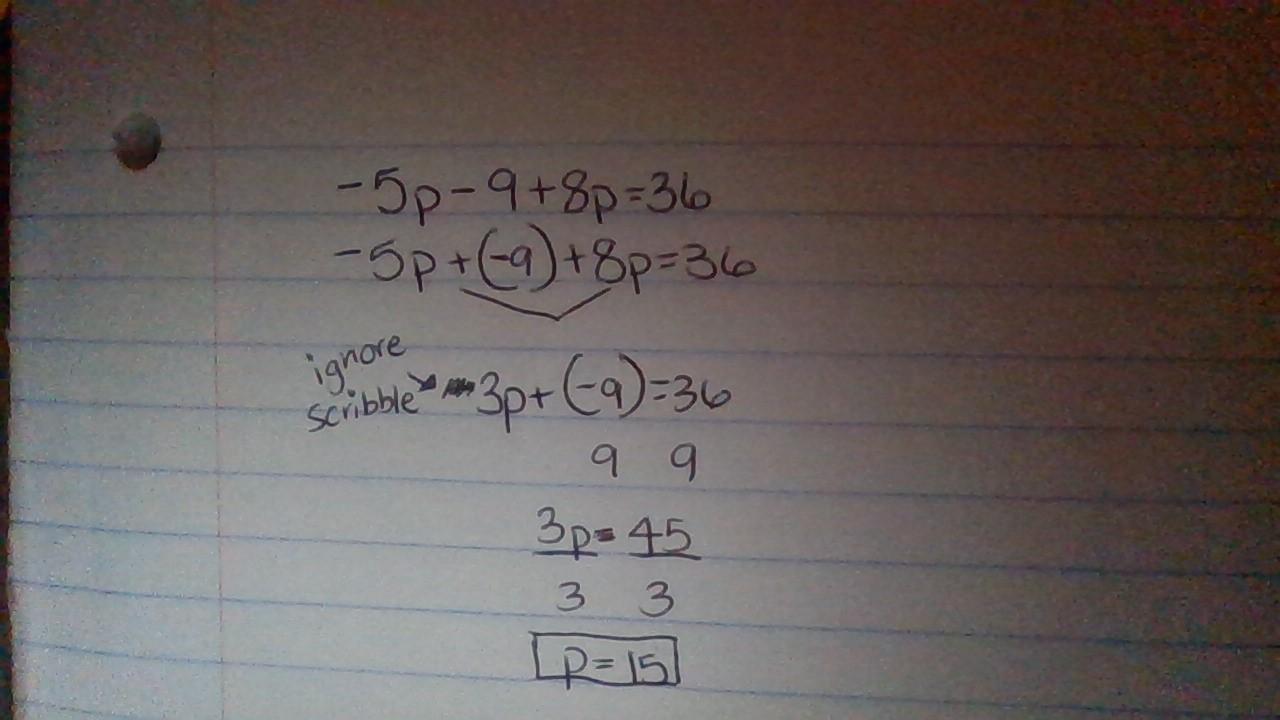 -5p-9+8p=36
-5p+(-9)+8p=36
ignore
scribble 3p+(-9)=36
9 9
3p=45
3 3
p=15